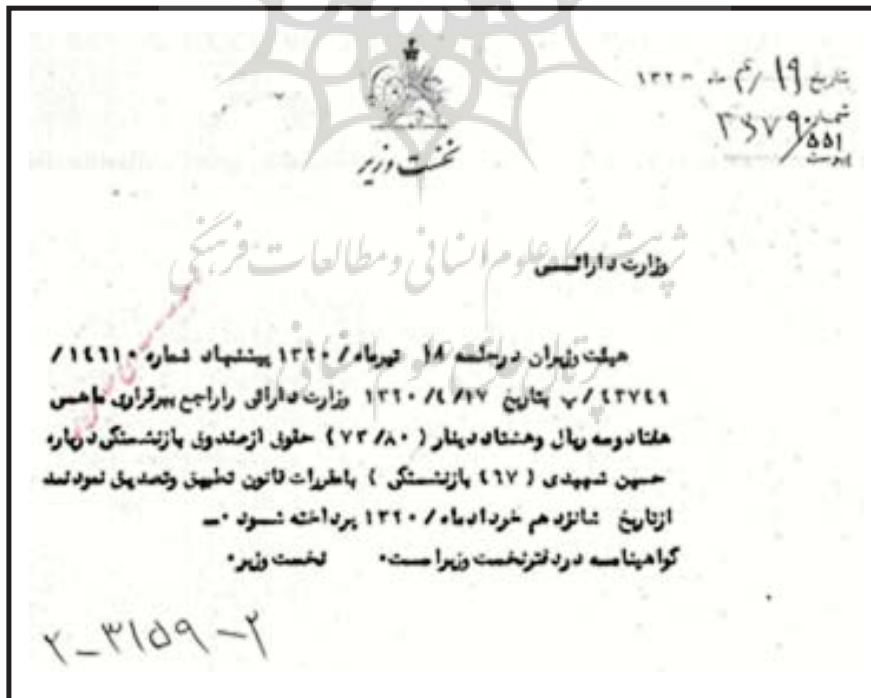 بتاریخ ۱۹/ ماه ۱۳۲۰
شماره ۳۶۷۹/۵۵۱
پیوست
نخست وزیر
پژوهشگاه علوم انسانی و مطالعات فرهنگی
وزارت دارائسی
پرتال جامع علوم انسانی
هیئت وزیران درجلسه ۱۸ تیرماه/ ۱۳۲۰ پیشنهاد شماره ۱٤٦۱۰/
٤۳۷٤۹/پ بتاریخ ۱۳۲۰/٤/۱۷ وزارت دارائی راراجع ببرقراری ماهسی
هفتادوسه ریال وهشتاددینار ( ۷۳/۸۰ ) حقوق ازصندوق بازنشستگی درباره
حسین شهیدی ( ٤٦۷ بازنشستگی ) بامقررات قانون تطبیق وتصدیق نمودنمد
ازتاریخ شانزدهم خردادماه/ ۱۳۲۰ پرداخته شسود ۰ــ
گواهینامسه دردفترنخست وزیراست۰ نخست وزیر۰
۲-۳۱۵۹-۲